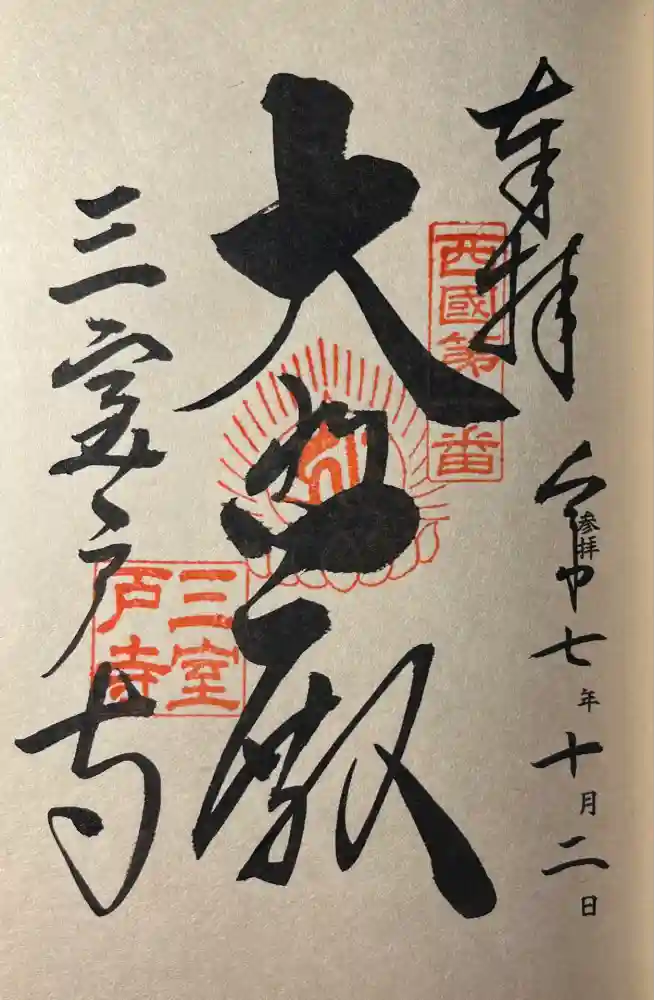 奉拝
西國第番
令和七年十月二日
参拝
大悲殿
三室戸寺
三室
戸寺